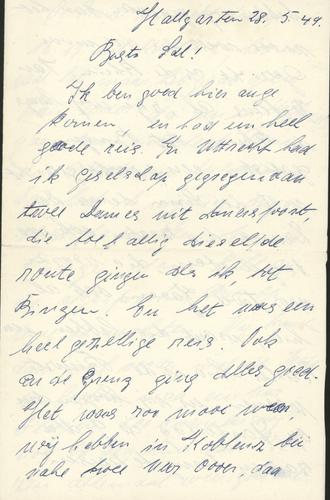 Hallgarten 28. 5. 49.
Beste Sal!
Ik ben goed hier ange
komen, en had een heel
goede reis. In Utrecht had
ik geselschap gegregen van
twee Dames uit Amersfoort,
die toefallig dieselfde
route gingen als ik, tot
Bingen. En het was een
heel gezellige reis. Ook
an de Grenz ging alles goed.
Het was zoo mooi weer,
wij hebben in Koblenz bij
nahe twee uur over, dan